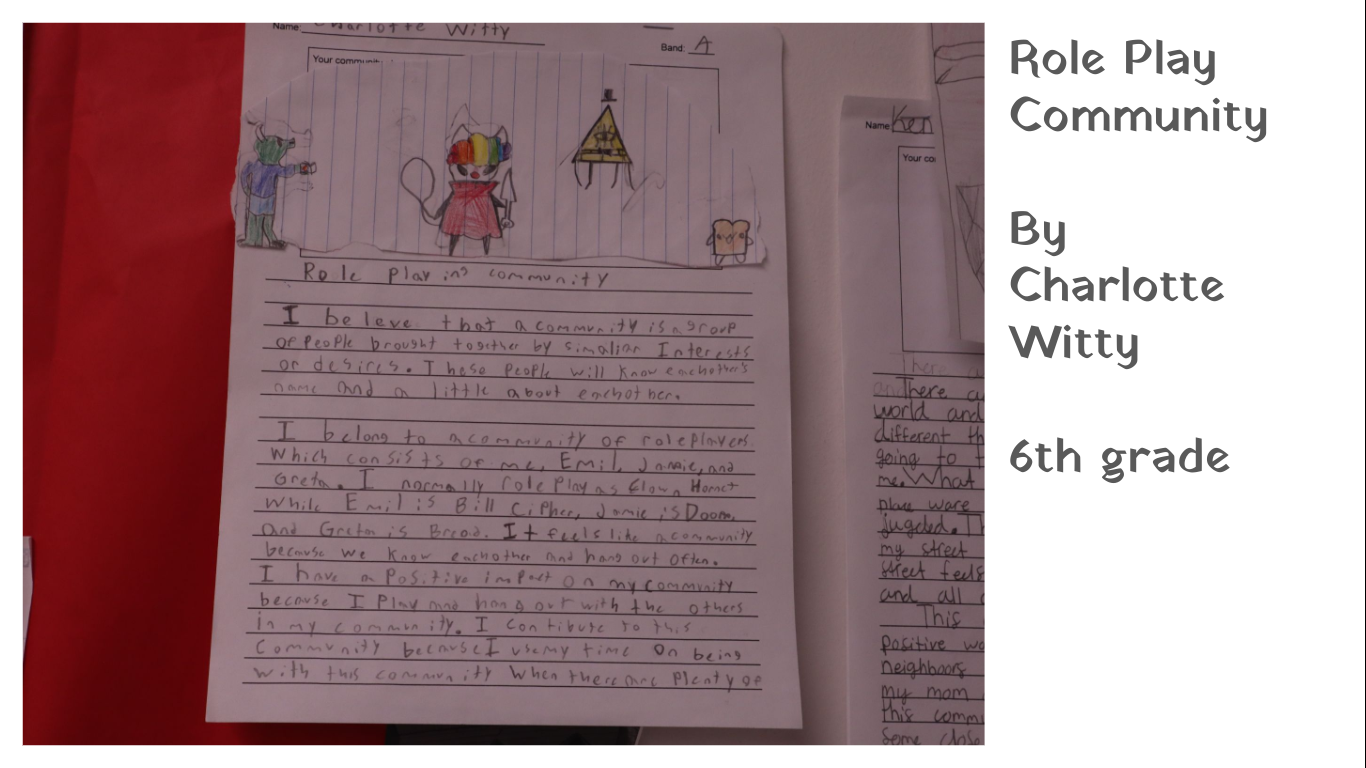 Name: Charlotte Witty
Band: A
Your community
Role playing community
I beleve that a community is a group
of people brought together by simaliar Interests
or desires. These people will know eachother's
name and a little about eachother.
I belong to a community of roleplayers.
Which consists of me, Emil, Jamie, and
Greta. I normally role play as Clown Hornet
While Emil is Bill Cipher, Jamie is Doom,
and Greta is Bread. It feels like a community
because we know eachother and hang out often.
I have a positive impact on my community
because I play and hang out with the others
in my community. I contibute to this
community because I use my time on being
with this community when there are plenty of
Name: Ken
Your co
There
and There
world and
different th
going to
me. What
place ware
jugded. Th
my street
street feels
and all
This
positive wa
neighboors
my mom
this commu
some close
Role Play
Community
By
Charlotte
Witty
6th grade